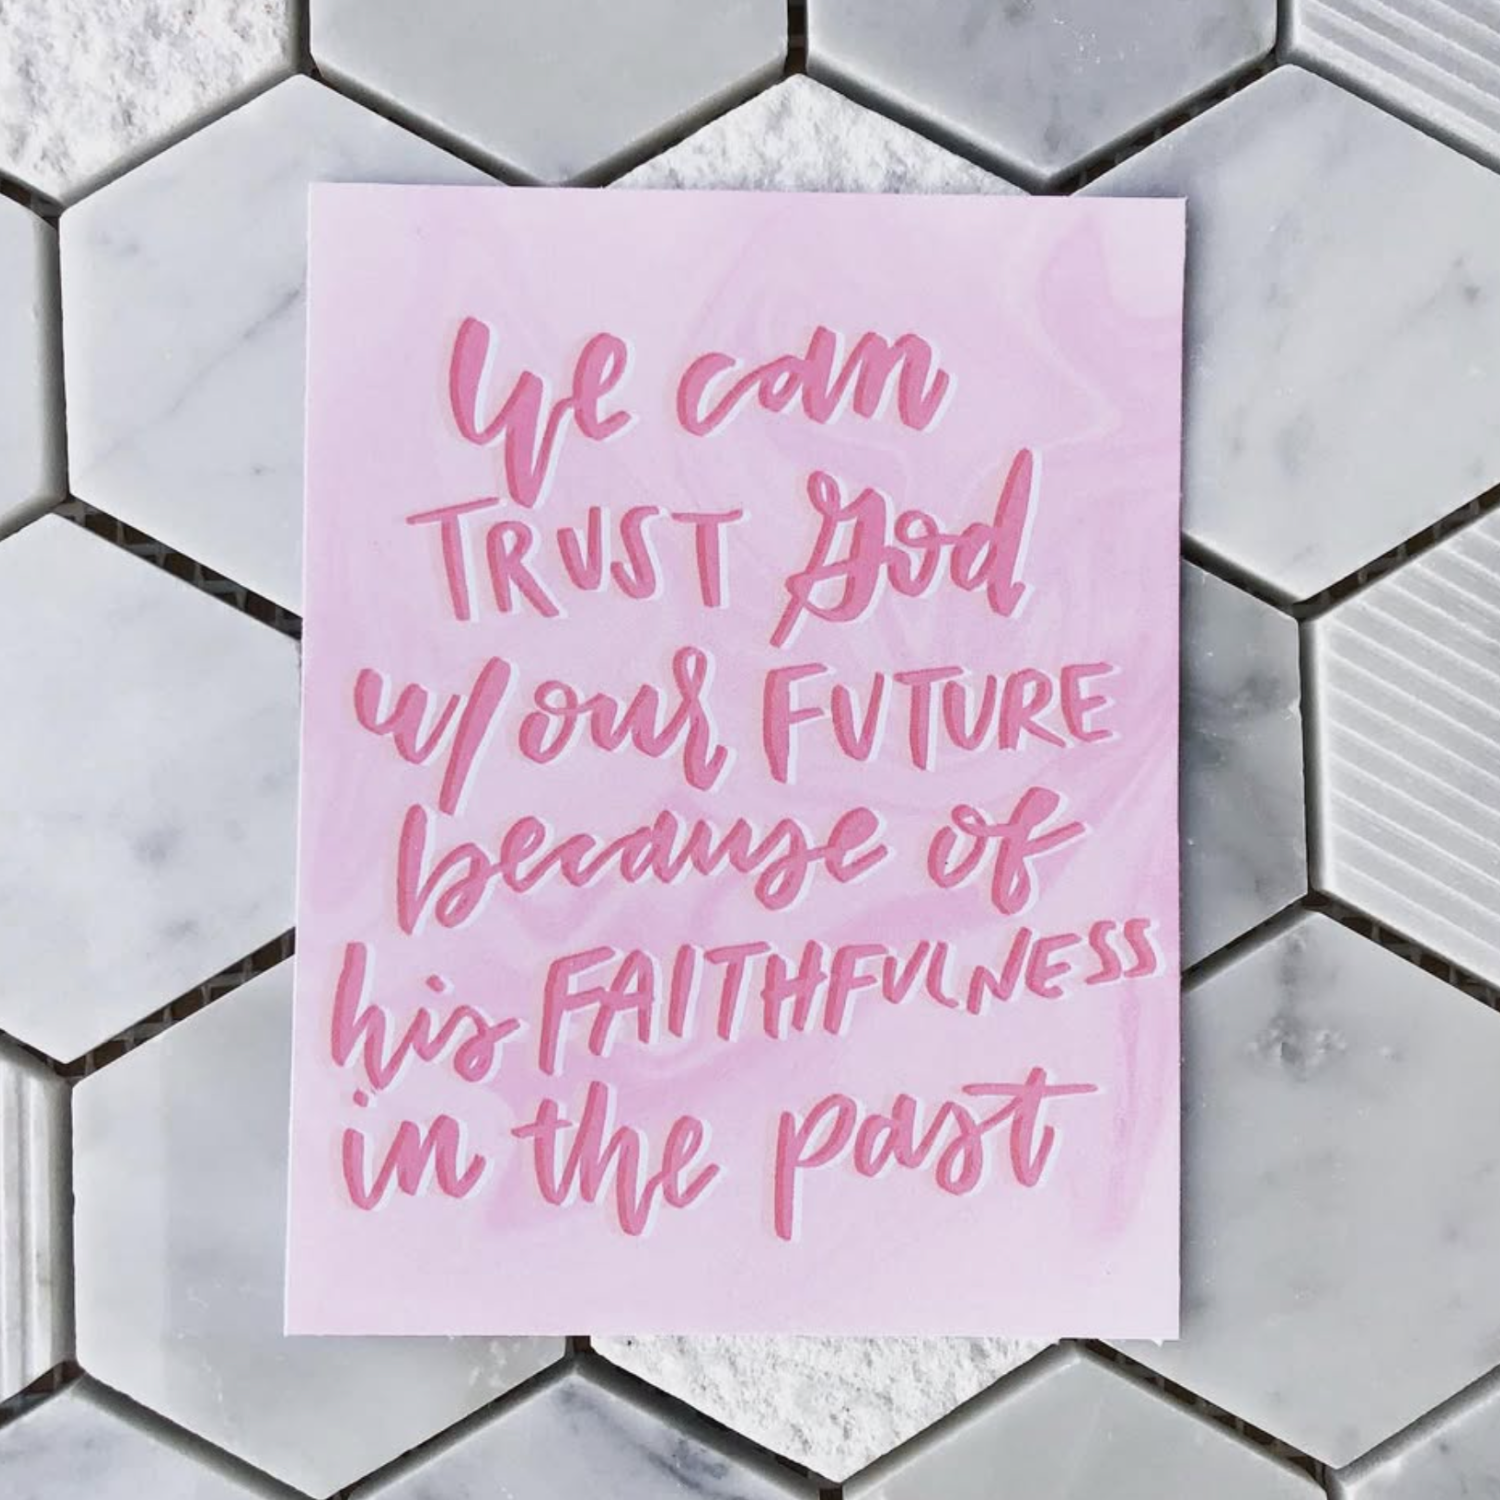 We can
TRUST God
w/our FUTURE
because of
his FAITHFULNESS
in the past